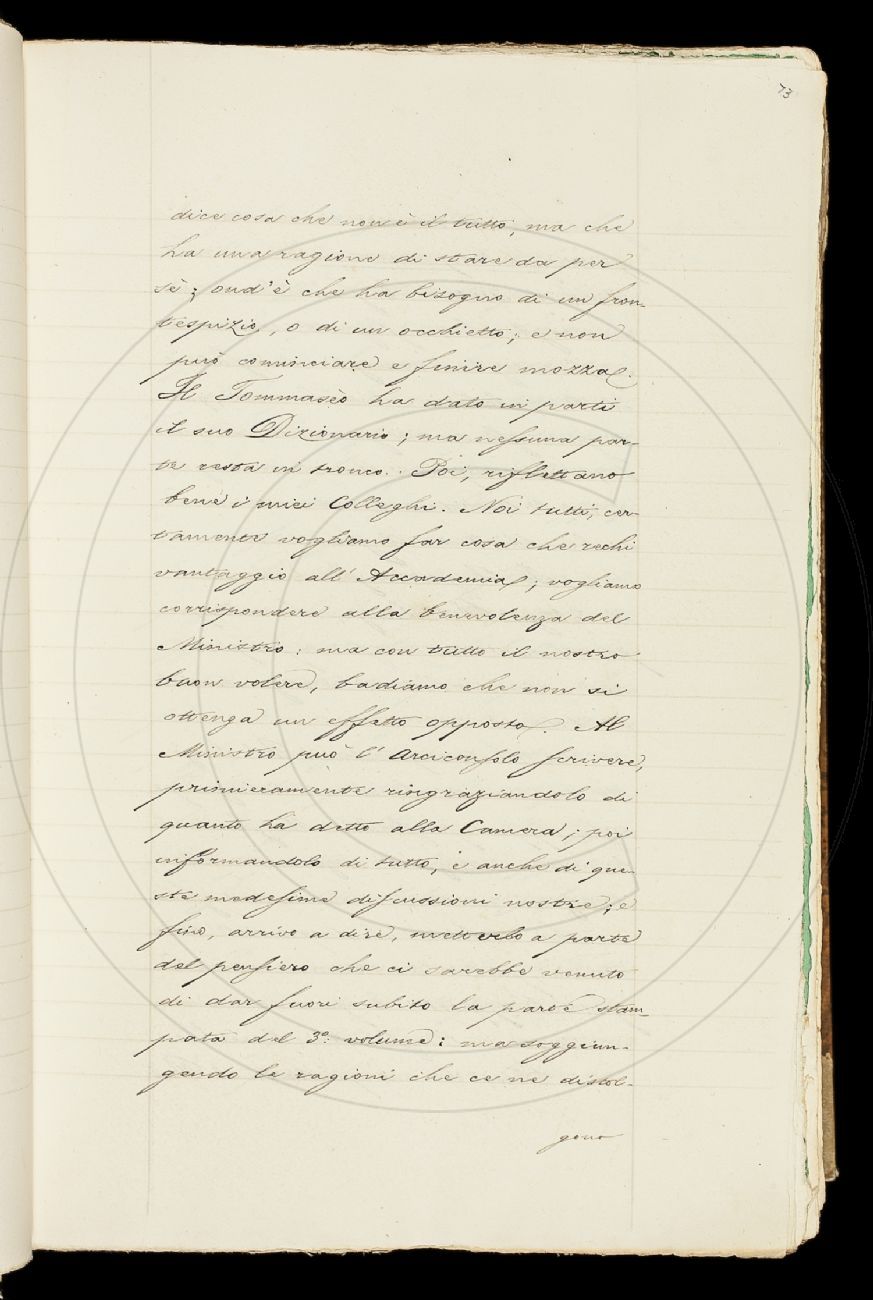 73
dice cosa che non è il tutto, ma che
ha una ragione di stare da per
sè; ond'è che ha bisogno di un fron-
tespizio, o di un occhietto; e non
può cominciare e finire mozza.
Il Tommasèo ha dato in parti
il suo Dizionario; ma nessuna par-
te resta in tronco. Poi, riflettano
bene i miei Colleghi. Noi tutti, cer-
tamente vogliamo far cosa che rechi
vantaggio all'Accademia; vogliamo
corrispondere alla benevolenza del
Ministro: ma con tutto il nostro
buon volere, badiamo che non si
ottenga un effetto opposto. Al
Ministro può l'Arciconsolo scrivere,
primieramente ringraziandolo di
quanto ha detto alla Camera; poi
informandolo di tutto, e anche di que-
ste medesime discussioni nostre; e
fino, arrivo a dire, metterlo a parte
del pensiero che ci sarebbe venuto
di dar fuori subito la parte stam-
pata del 3º. volume: ma soggiun-
gendo le ragioni che ce ne distol-
gono